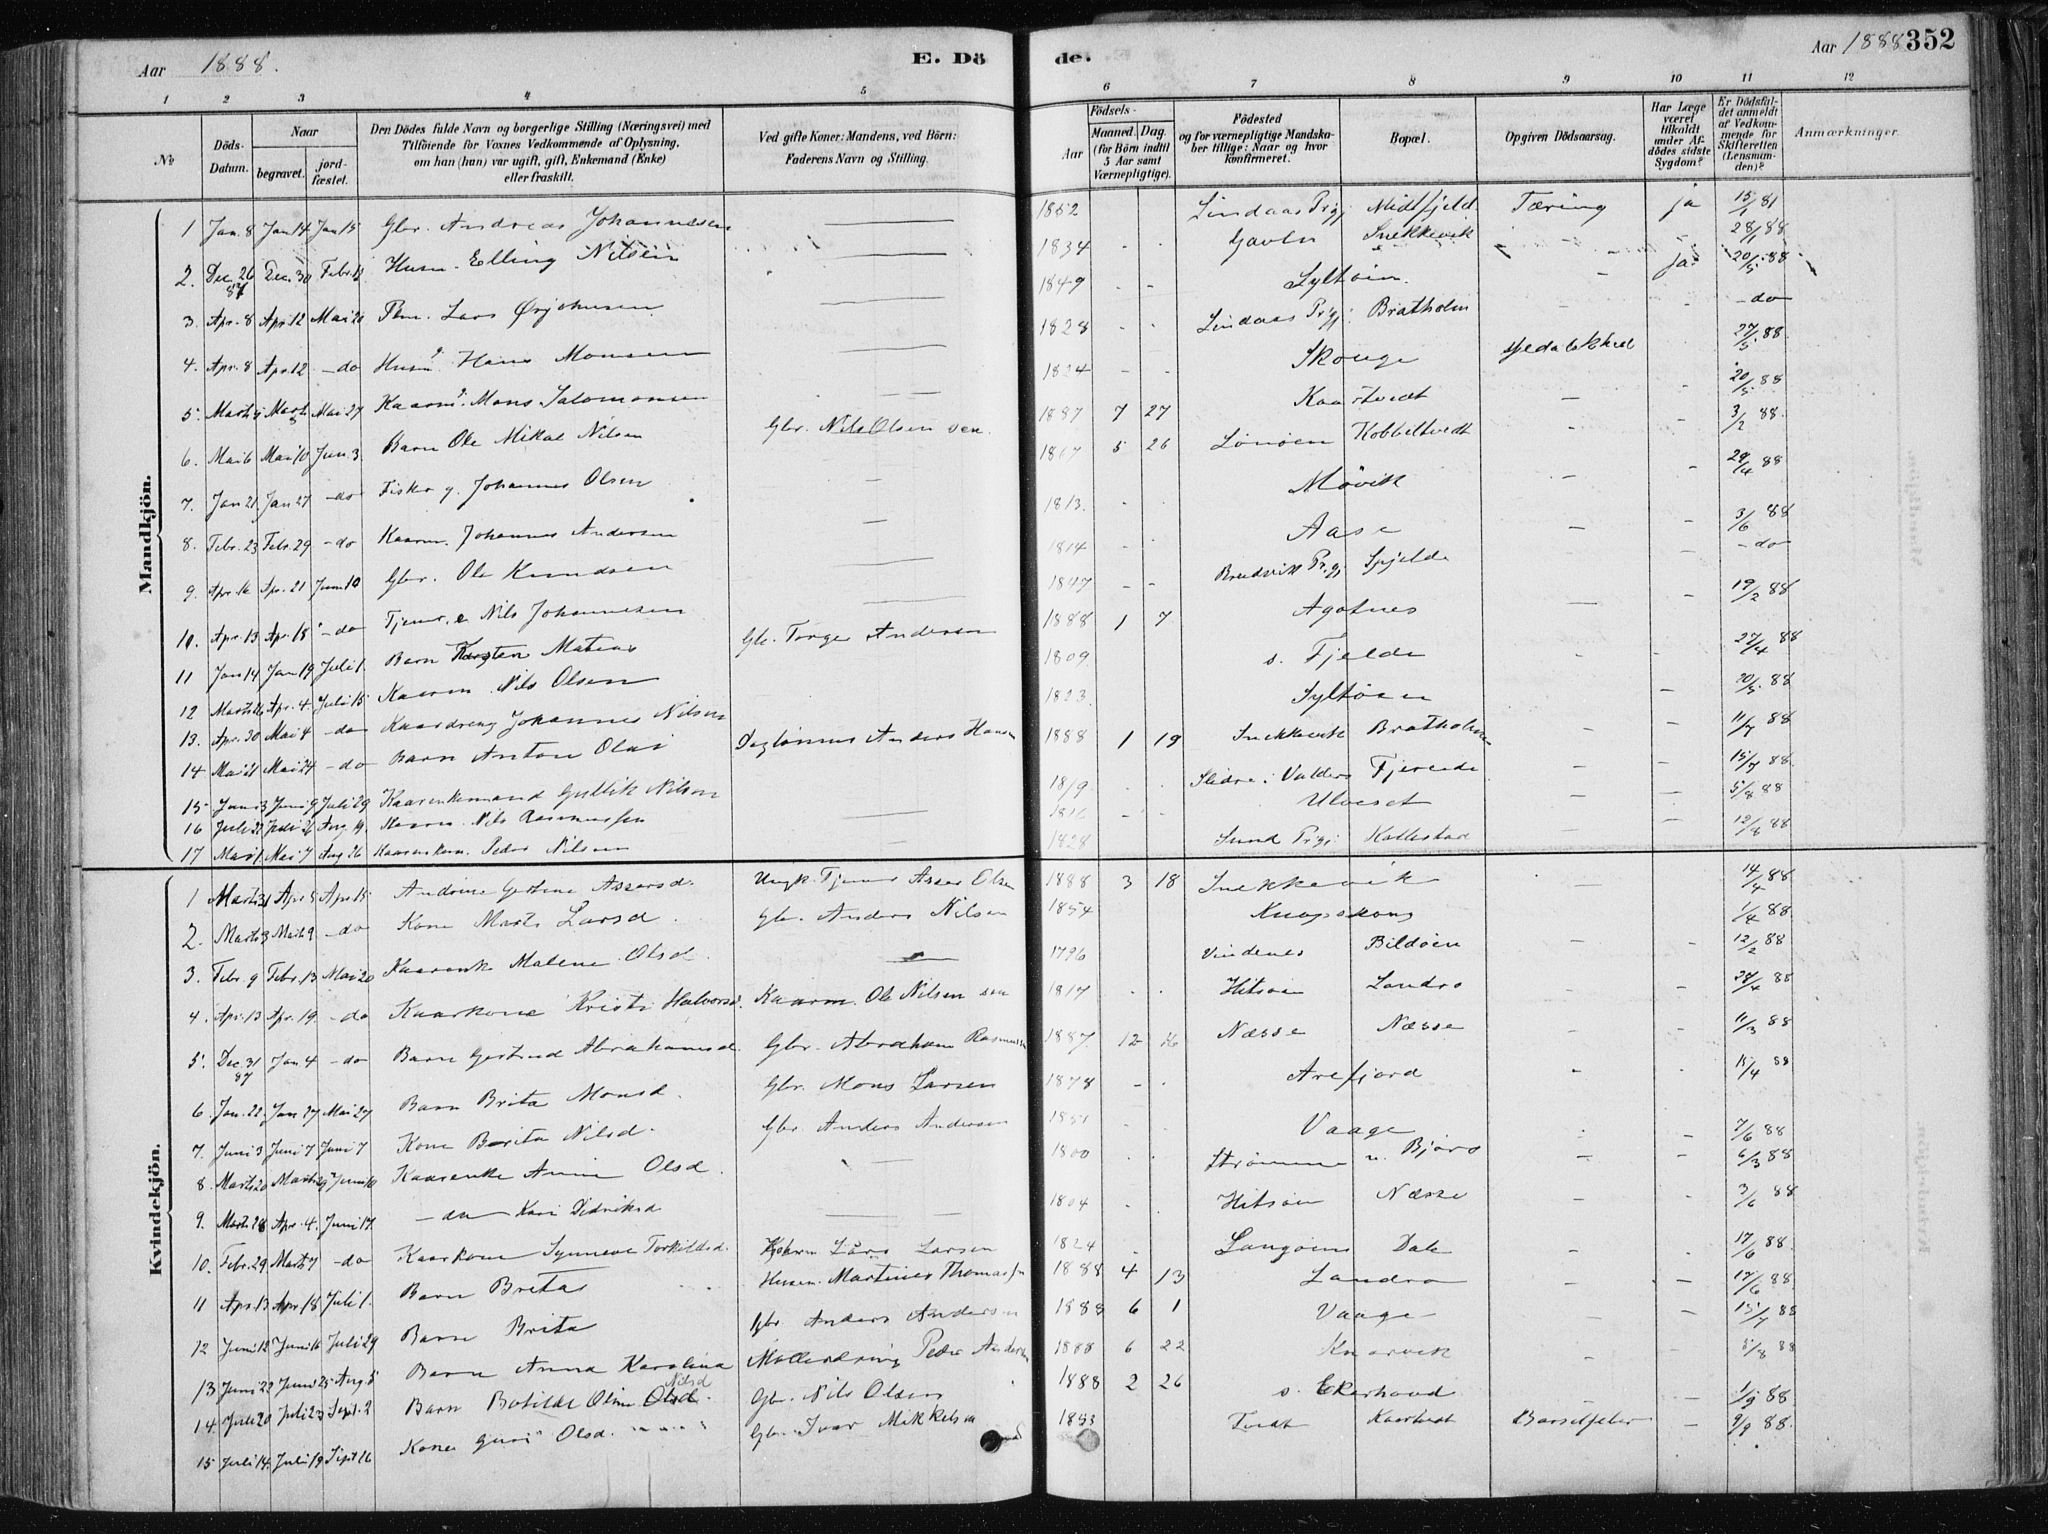 Aar 1888. E. Dö de. Aar 1888 352
1 2 3 4 5 6 7 8 9 10 11 12
No
Döds-Datum.
Naar
begravet.
jord-fæstet.
Den Dödes fulde Navn og borgerlige Stilling (Næringsvei) med
Tilföiende for Voxnes Vedkommende af Oplysning,
om han (hun) var ugift, gift, Enkemand (Enke)
eller fraskilt.
Ved gifte Koner: Mandens, ved Börn:
Faderens Navn og Stilling.
Aar
Födsels-
Maaned. Dag.
(for Börn indtil
5 Aar samt
Værnepligtige).
Födested
og for værnepligtige Mandska-
ber tillige: Naar og hvor
konfirmeret.
Bopæl.
Opgiven Dödsaarsag.
Har Læge
været
tilkaldt
under Af-
dödes sidste
Sygdom?
Er Dödsfal-
det anmeldt
af Vedkom-
mende for
Skifteretten
(Lensman-
den)?
Anmærkninger.
Mandkjön.
1 Jan. 8 Jan 14 Jan 15 Gbr. Andreas Johannesen 1852 Lindaas Prgj. Midtfjeld Tæring ja
2. Dec. 26 87 Dec. 30 Febr. Husm. Elling Nilsen 1834 Gavln Snekkevik 28/1 88
3. Apr. 8 Apr. 12 Mai 20 Lars Ørjohnsen 1849 Syltøen ja 20/5 88
4. Apr. 8 Apr. 12 - do Husm. Hans Monsen 1828 Lindaas Prgj. Bratholm - do
5. Marts Marts Mai 27 Kaarm. Mons Salomonsen 1824 Skouge 27/5 88
6. Mai 6 Mai 10 Jun. 3. Barn Ole Mikal Nilsen Gbr. Nils Olsen sen. 1887 7 27 Kaartvedt 20/5 88
7. Jan 21. Jan 27 - do Fisker g. Johannes Olsen 5 26 Lønøen Kobbeltvedt 3/2 88.
8. Febr. 23 Febr. 29 - do Kaarm. Johannes Andersen 1813. Møvik 29/4 88
9. Apr. 16 Apr. 21 Jun. 10 Gbr. Ole Knudsen 1814 Aase 3/6 88
10. Apr. 13 Apr. 18 - do Tjener Nils Johannesen 1847 Brudvik Prgj Spjelde - do
11 Jan 14 Jan 19 Juli 1. Barn Karsten Mateas Gbr. Torge Andersen 1888 1 7 Agotnes 19/2 88
12 Marts Apr. 4. Juli 15 Kaarm. Nils Olsen 1809 s. Fjelde 27/4 88
13. Apr. 30 Mai 4 - do Kaardreng Johannes Nilsen 1823 Syltøen 20/5 88
14 Mai Mai 24 - do Barn Anton Olai Daglønner Anders Hansen 1888 1 19 Snekkevik Bratholmen 11/7 88
15 Juni 3 Juni 9 Juli 29 Kaarenkemand Gullik Nilsen Slidre i Valders Fjereide 15/7 88
16 Juli Juli 26 Aug. 19. Kaarm. Nils Rasmussen 1816 Ulveset 5/8 88
17 Mai 1 Mai 7 Aug 26 Kaarenkem. Peder Nilsen 1828 Sund Prgj. Kallestad 12/8 88
Kvindekjön.
1 Marts 31 Apr. 5 Apr. 15 Andrine Gestine Assersd. Ungk. Tjener Asser Olsen 1888 3 18 Snekkevik 14/4 88
2. Marts 3 Marts 9 - do Kone Marts Larsd. Gbr. Anders Nilsen 1854 Knapskong 1/4 88
3. Febr. 9 Febr. 13 Mai 20 Kaarenke Malene Olsd. 1796 Vindenes Bildøen 12/2 88
4. Apr. 13 Apr. 19. - do Kaarkone Kristi Halvorsd. Kaarm. Ole Nilsen sen 1817 Hitsøen Landro 28/4 88
5. Dec. 31 87 Jan 4 - do Barn Gertrud Abrahamsd. Gbr. Abraham Rasmussen 1887. 12 16 Næsse Næsse 11/3 88
6. Jan. 22. Jan 27 Mai 27 Barn Brita Monsd. Gbr. Mons Larsen 1878 Arefjord 15/4 88
7. Juni 3 Juni 7 Juni 7 Kone Berita Nilsd. Gbr Anders Andersen 1851 Vaage 7/6 88
8. Marts 20 Marts 29 Juni 10 Kaarenke Anne Olsd. 1800 Strømme n. Bjørø 6/3 88
9. Marts 28 Apr. 4. Juni 17. - do Kari Didriksd 1804 Hitsøen Næsse 3/6 88
10. Febr. 29 Marts 7 - do Kaarkone Synneve Torkildsd. Lars Larsen 1824 Langøens Dale 17/6 88.
11 Apr. 13 Apr 18 Juli 1. Barn Brita Husm. Martines Thomassen 1888 4 13 Landro 17/6 88.
12 Juni 12 Juni 16 Juli 29 Barn Brita Gbr. Anders Andersen 1888 6 1 Vaage 15/7 88
13 Juni 22 Juni 25 Aug. 5 Barn Anna Karolina Møllerdreng Peder Andersen 1888 6 22 Knarvik 5/8 88
14. Juli 20 Juli 23 Sept. 2 Barn Botilde Oline Olsd. Nilsd Gbr. Nils Olsen 1888 2 26 s. Ekerhovd 1/9 88
15 Juli 14. Juli 19 Sept 16 Kone Guri Olsd. Gbr. Ivar Mikkelsen 1853 Tvedt Kaartvedt Barselfeber 9/9 88.